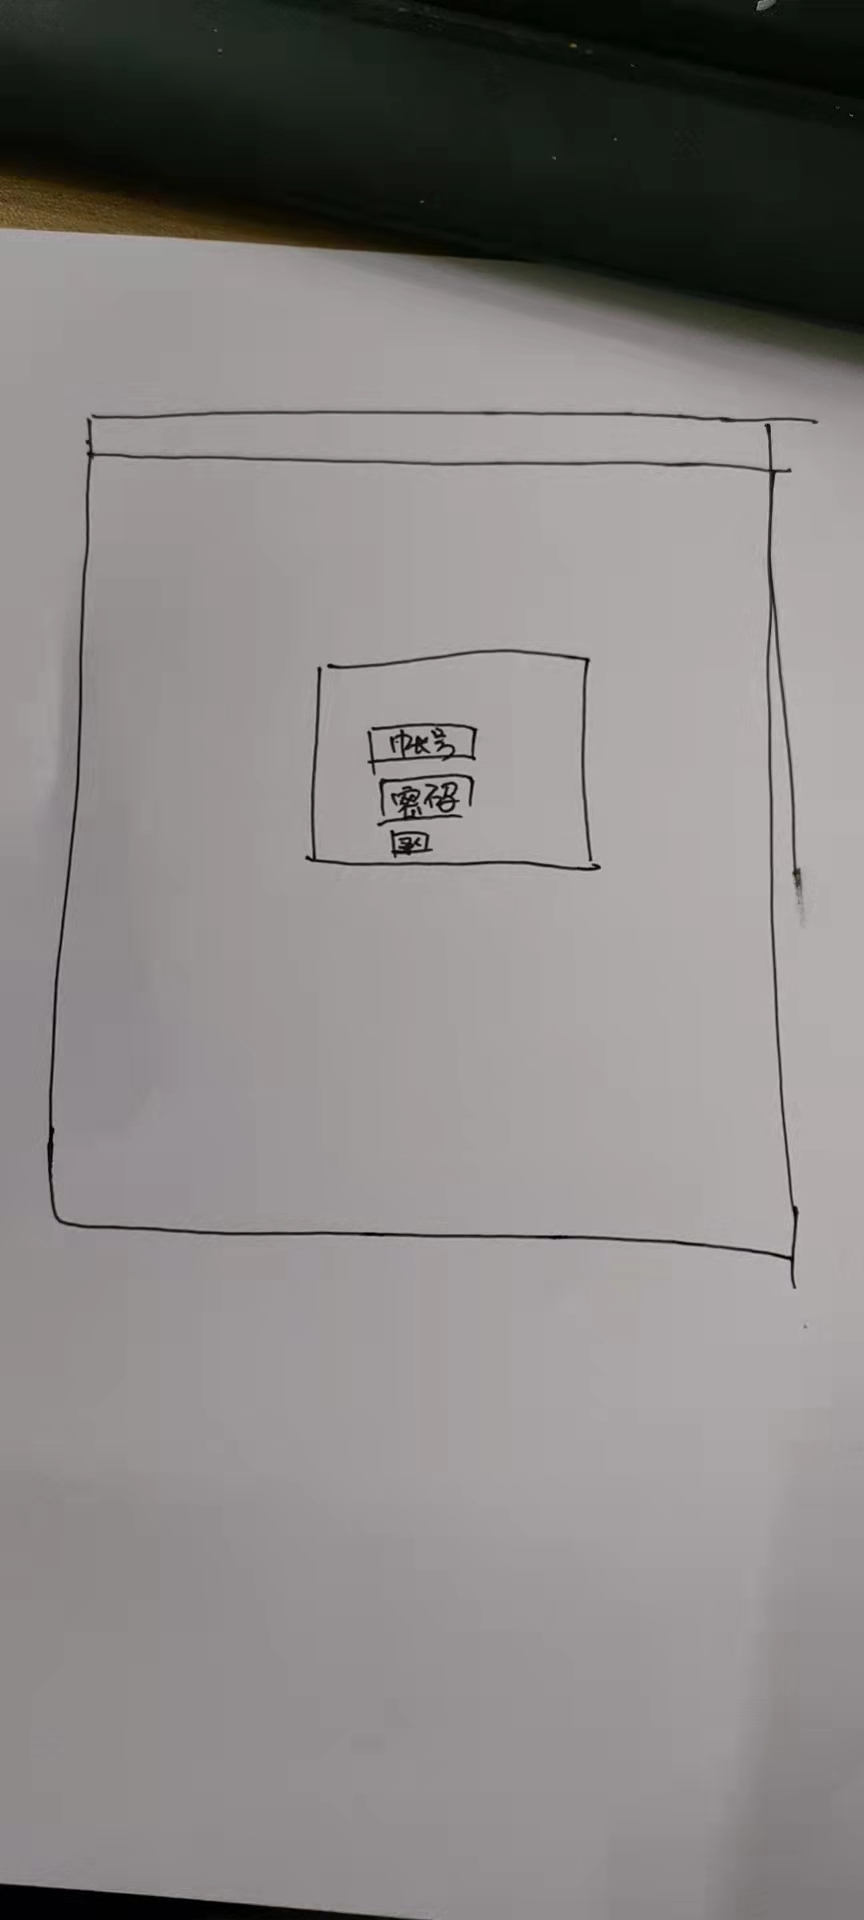 帐号
密码